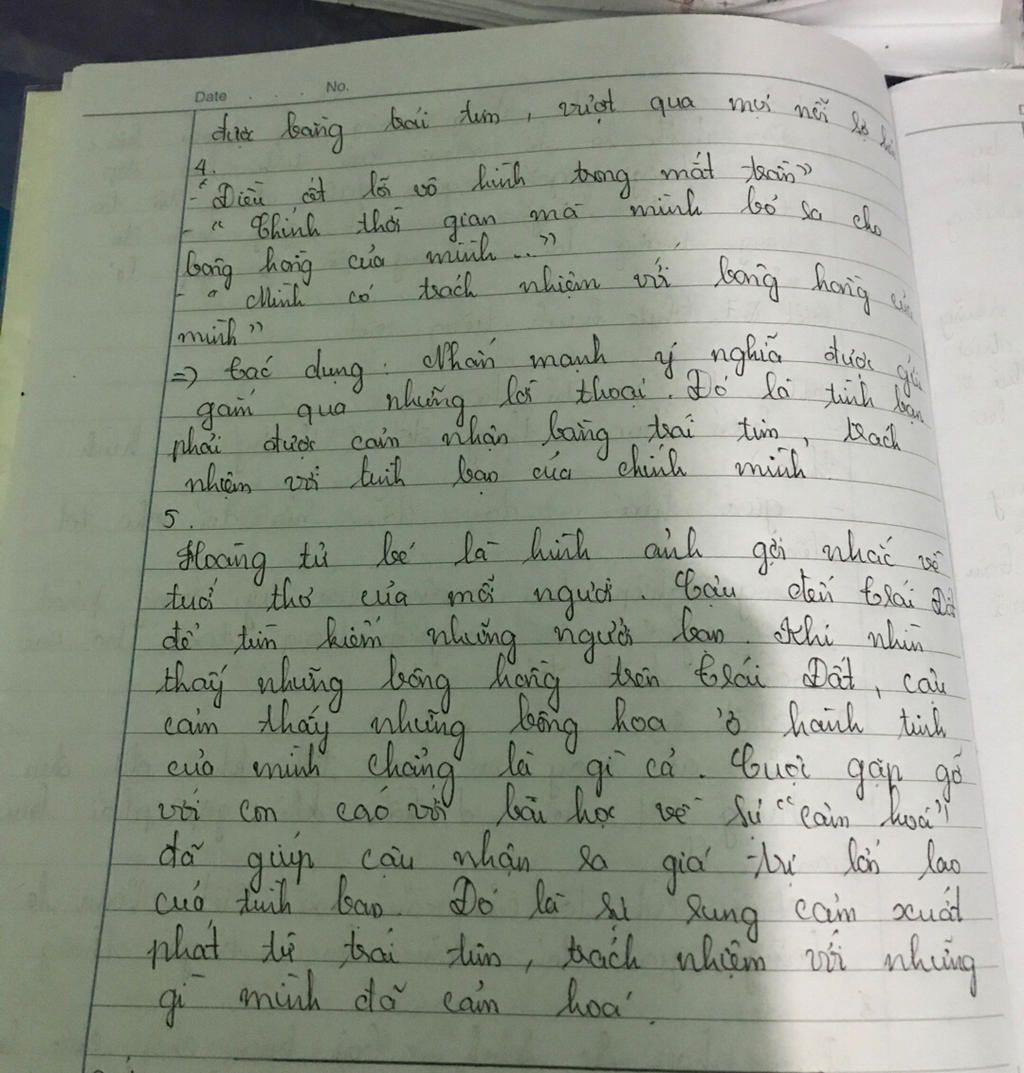 Date No.
được bằng trái tim, vượt qua mọi nỗi sợ
4.
- "Điều cốt lõi vô hình trong mắt trần"
- " Chính thời gian mà mình bỏ ra cho
bông hồng của mình..."
- " Mình có trách nhiệm với bông hồng của
mình"
=> Tác dụng: Nhấn mạnh ý nghĩa được gửi
gắm qua những lời thoại. Đó là tình bạn
phải được cảm nhận bằng trái tim, trách
nhiệm với tình bạn của chính mình
5.
Hoàng tử bé là hình ảnh gợi nhắc về
tuổi thơ của mỗi người. Cậu đến Trái Đất
để tìm kiếm những người bạn. Khi nhìn
thấy những bông hồng trên Trái Đất, cậu
cảm thấy những bông hoa ở hành tinh
của mình chẳng là gì cả. Cuộc gặp gỡ
với con cáo với bài học về sự "cảm hoá"
đã giúp cậu nhận ra giá trị lớn lao
của tình bạn. Đó là sự rung cảm xuất
phát từ trái tim, trách nhiệm với những
gì mình đã cảm hoá.